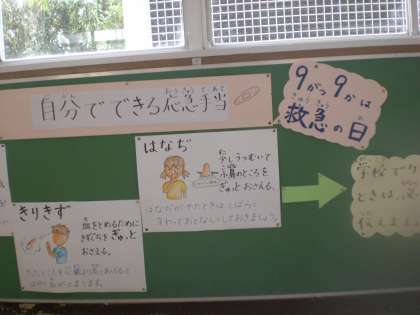 自分でできる応急手当
9がつ9かは
救急の日
はなぢ
少しうつむいて
小鼻のところを
ぎゅっとおさえる。
はなぢがでたときはしばらく
すわっておとなしくしておきましょう。
きりきず
血をとめるために
きずぐちをぎゅっと
おさえる。
学校でけ
ときは、
伝えま